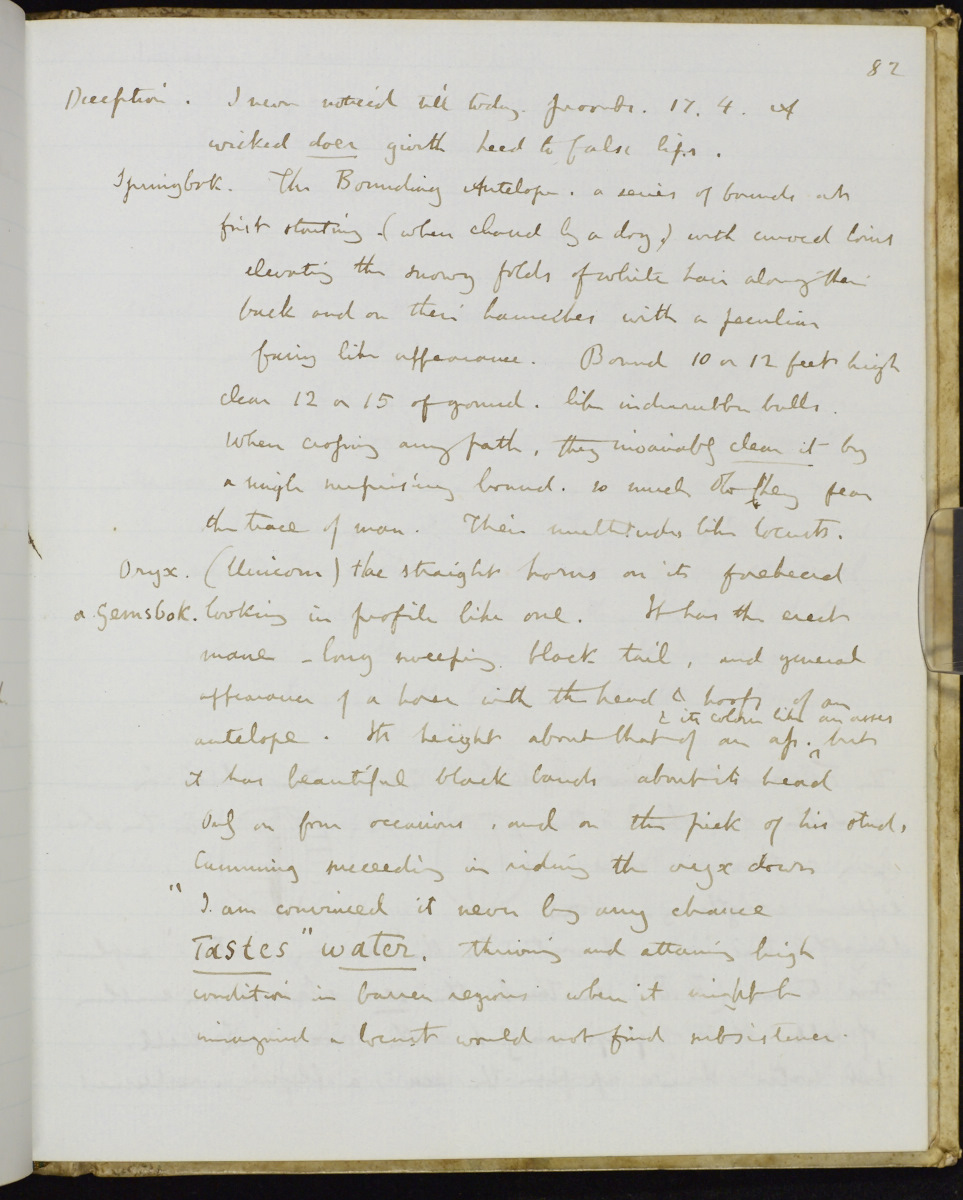 82
Deception. I never noticed till today. Proverbs. 17. 4. A
wicked doer giveth heed to false lips.
Springbok. The Bounding Antelope. a series of bounds at
first starting (when chased by a dog) with curved loins
elevating the snowy folds of white hair along their
back and on their haunches with a peculiar
fairy like appearance. Bound 10 or 12 feet high
clear 12 or 15 of ground. like indiarubber balls.
When crossing any path, they invariably clear it by
a single surprising bound. so much do they fear
the trace of man. Their multitudes like locusts.
Oryx. (Unicorn) the straight horns on its forehead
or Gemsbok. looking in profile like one. It has the erect
mane - long sweeping black tail, and general
appearance of a horse with the head & hoofs of an
& its colour like an asses
antelope. Its height about that of an ass. but
it has beautiful black bands about its head
Only on four occasions, and on the pick of his stud,
Cumming succeeding in riding the oryx down
"I am convinced it never by any chance
Tastes" water. thriving and attaining high
condition in barren regions when it might be
imagined a locust would not find subsistence.